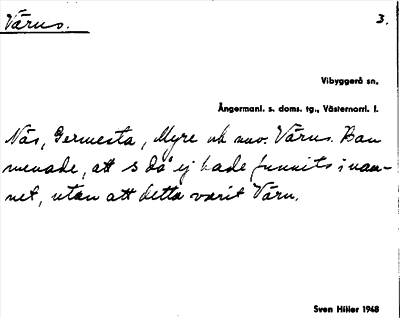 Vårus.
3.
Vibyggerå sn.
Ångermanl. s. doms. tg., Västernorrl. l.
Näs, Germesta, Myre uk anv. Vårus. Han
menade, att s då ej hade funnits i nam-
net, utan att detta varit Våru.
Sven Hiller 1948